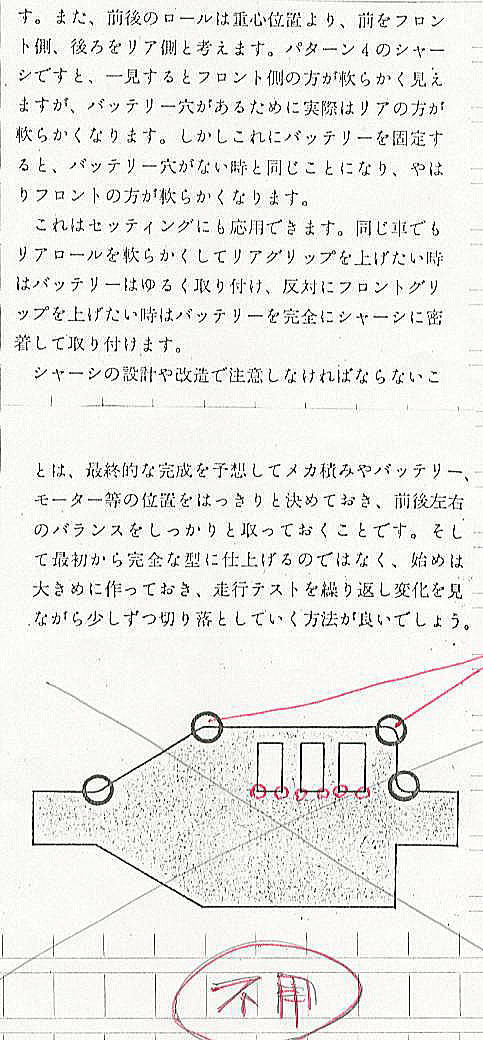 す。また、前後のロールは重心位置より、前をフロン
ト側、後ろをリア側と考えます。パターン4のシャー
シですと、一見するとフロント側の方が軟らかく見え
ますが、バッテリー穴があるために実際はリアの方が
軟らかくなります。しかしこれにバッテリーを固定す
ると、バッテリー穴がない時と同じことになり、やは
りフロントの方が軟らかくなります。
これはセッティングにも応用できます。同じ車でも
リアロールを軟らかくしてリアグリップを上げたい時
はバッテリーはゆるく取り付け、反対にフロントグリ
ップを上げたい時はバッテリーを完全にシャーシに密
着して取り付けます。
シャーシの設計や改造で注意しなければならないこ
とは、最終的な完成を予想してメカ積みやバッテリー、
モーター等の位置をはっきりと決めておき、前後左右
のバランスをしっかりと取っておくことです。そし
て最初から完全な型に仕上げるのではなく、始めは
大きめに作っておき、走行テストを繰り返し変化を見
ながら少しずつ切り落としていく方法が良いでしょう。
不用